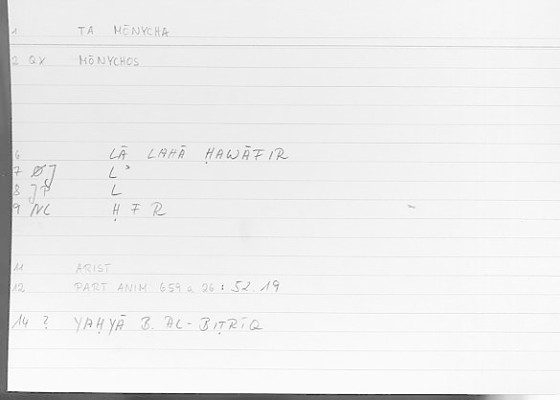 1 TA MŌNYCHA
2 QX MŌNYCHOS
6 LĀ LAHĀ ḤAWĀFIR
7 ØJ Lʾ
8 JP L
9 NL Ḥ F R
11 ARIST
12 PART ANIM 659 a 26 : 52.19
14 ? YAḤYĀ B. AL-BIṬRĪQ